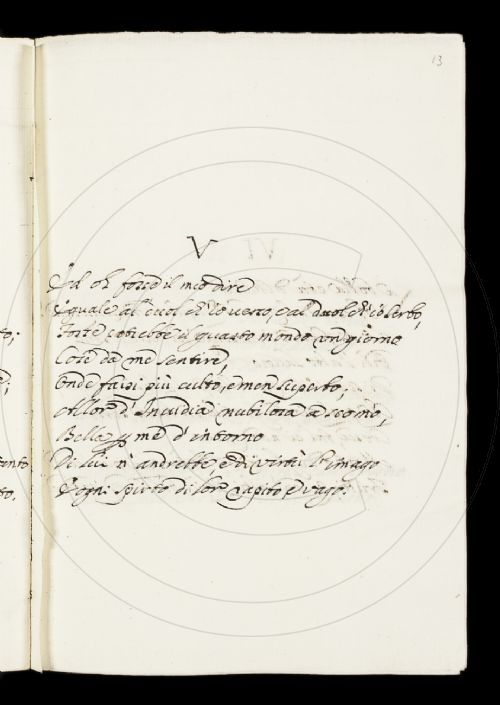 13
V
Ed oh foss' il mio dire
Eguale al ch'io verso, e al duol ch'io serbo,
Forse potrebbe il quarto mondo un giorno
Cose da me sentire,
Onde fassi più culto, e men superbo;
Allor d'Invidia nubilosa a scorno,
Bella me d'intorno
Di lui n'andrebbe e di virtù l'imago
D'ogni spirto di lor rapito, e vago.
to;